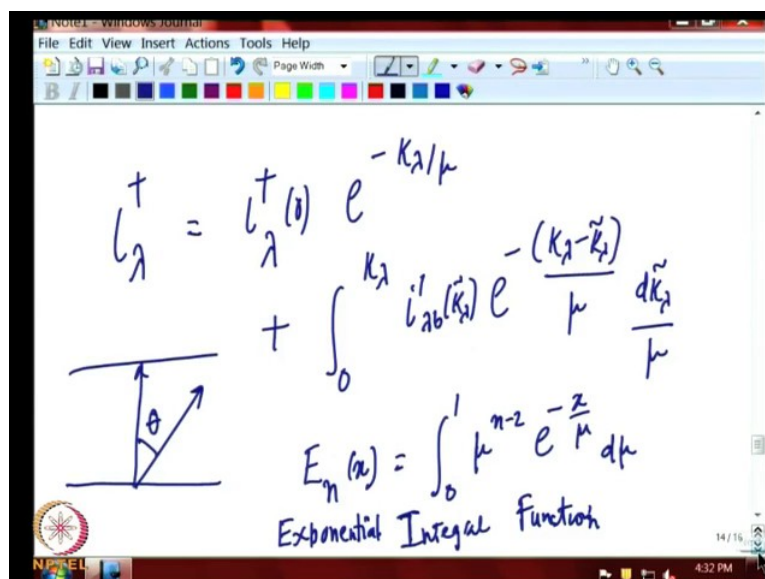 Note1 - Windows Journal
File Edit View Insert Actions Tools Help
Page Width
B I
i_λ^+ = i_λ^+(0) e^{-K_λ/μ}
+ ∫_0^{K_λ} i'_{λb}(K̃_λ) e^{-(K_λ-K̃_λ)/μ} dK̃_λ/μ
θ
E_n(x) = ∫_0^1 μ^{n-2} e^{-x/μ} dμ
Exponential Integral Function
14/16
NPTEL
4:32 PM